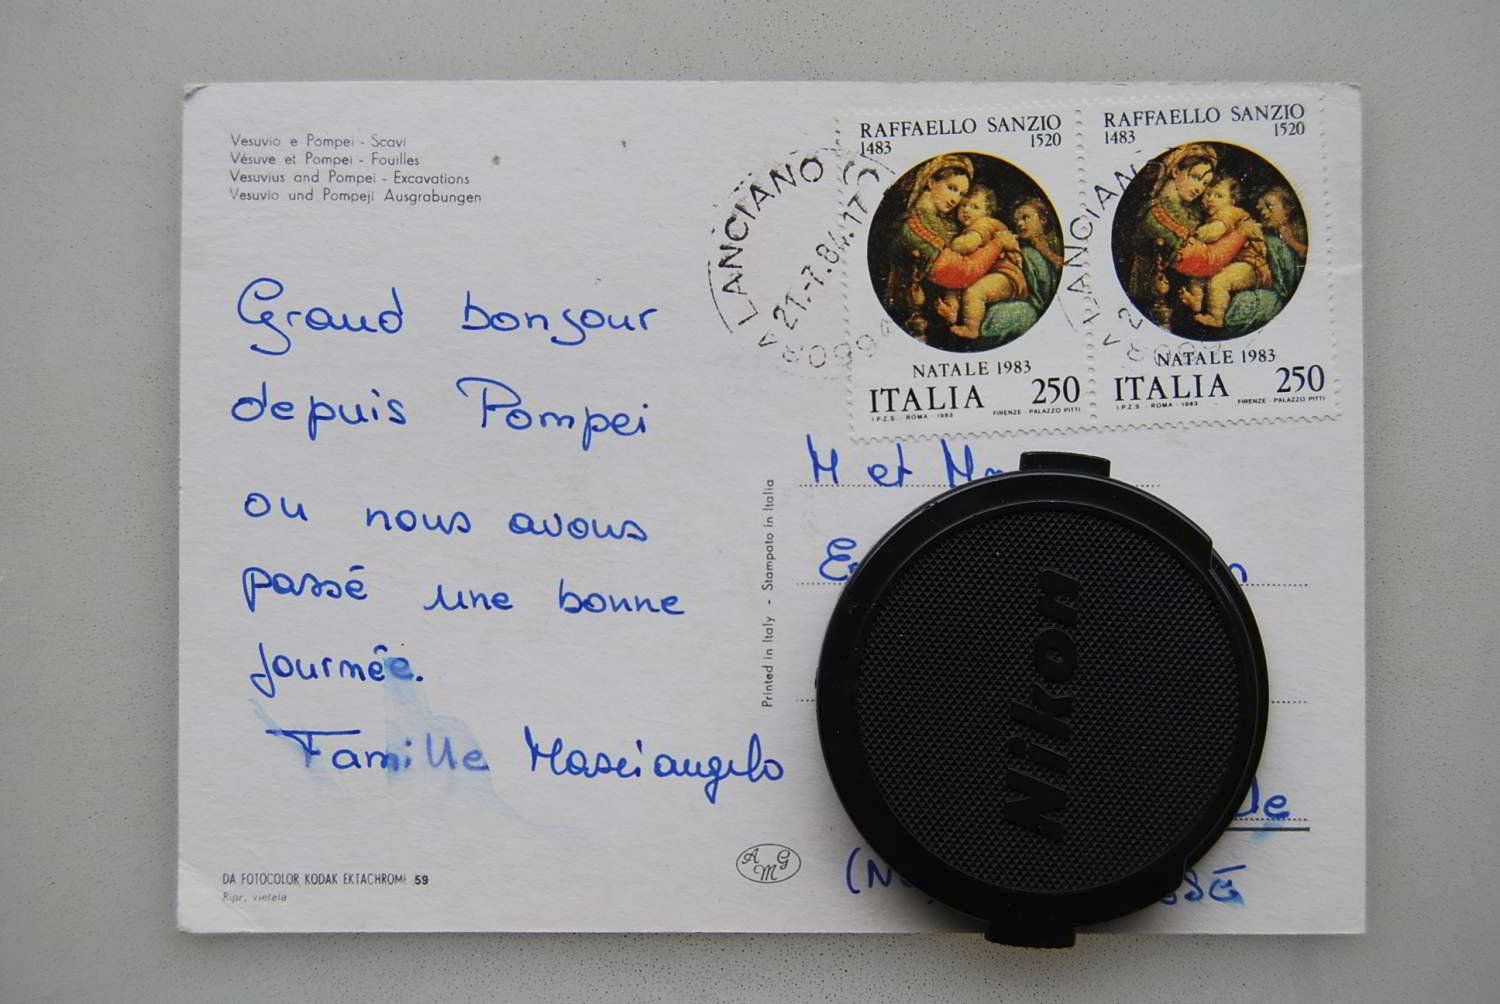 Vesuvio e Pompei - Scavi
Vésuve et Pompei - Fouilles
Vesuvius and Pompei - Excavations
Vesuvio und Pompeji Ausgrabungen
Grand bonjour
depuis Pompei
ou nous avons
passé une bonne
journée.
Famille Masciangelo
DA FOTOCOLOR KODAK EKTACHROME 59
Ripr. vietata
AMG
Printed in Italy - Stampato in Italia
LANCIANO
21.-7.84.17
ORA
RAFFAELLO SANZIO
1483 1520
NATALE 1983
ITALIA 250
I.P.Z.S. - ROMA - 1983 FIRENZE - PALAZZO PITTI
LANCIAN
RAFFAELLO SANZIO
1483 1520
NATALE 1983
ITALIA 250
I.P.Z.S. - ROMA - 1983 FIRENZE - PALAZZO PITTI
M et
Nikon